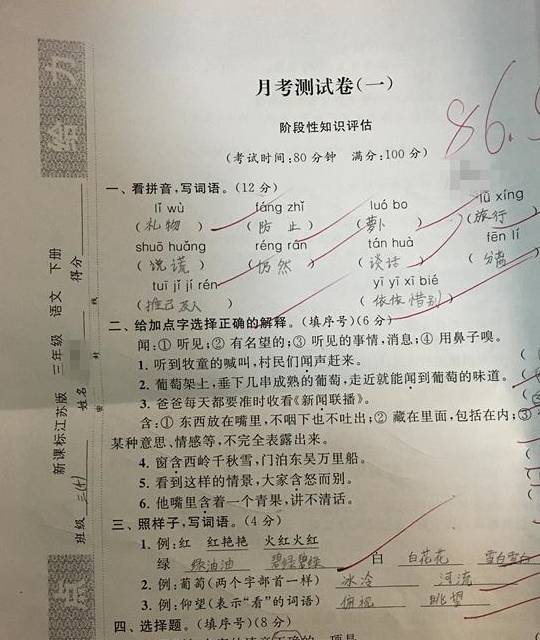 给力
月考测试卷(一)
86.5
阶段性知识评估
(考试时间:80分钟 满分:100分)
一、看拼音,写词语。(12分)
lǐ wù fáng zhǐ luó bo lǚ xíng
(礼物) (防止) (萝卜) (旅行)
shuō huǎng réng rán tán huà fēn lí
(说谎) (仍然) (谈话) (分离)
tuī jǐ jí rén yī yī xī bié
(推己及人) (依依惜别)
二、给加点字选择正确的解释。(填序号)(6分)
闻:① 听见;② 有名望的;③ 听见的事情,消息;④ 用鼻子嗅。
1. 听到牧童的喊叫,村民们闻声赶来。
2. 葡萄架上,垂下几串成熟的葡萄,走近就能闻到葡萄的味道。
3. 爸爸每天都要准时收看《新闻联播》。
含:① 东西放在嘴里,不咽下也不吐出;② 藏在里面,包括在内;③
某种意思、情感等,不完全表露出来。
4. 窗含西岭千秋雪,门泊东吴万里船。
5. 看到这样的情景,大家含怒而别。
6. 他嘴里含着一个青果,讲不清话。
三、照样子,写词语。(4分)
1. 例:红 红艳艳 火红火红
绿 绿油油 碧绿碧绿 白 白花花 雪白雪白
2. 例:葡萄(两个字部首一样) 冰冷 河流
3. 例:仰望(表示“看”的词语) 俯视 眺望
四、选择题。(填序号)(8分)
新课标江苏版 三年级 语文 下册
班级 三(4) 姓名 得分
密 封 线
点